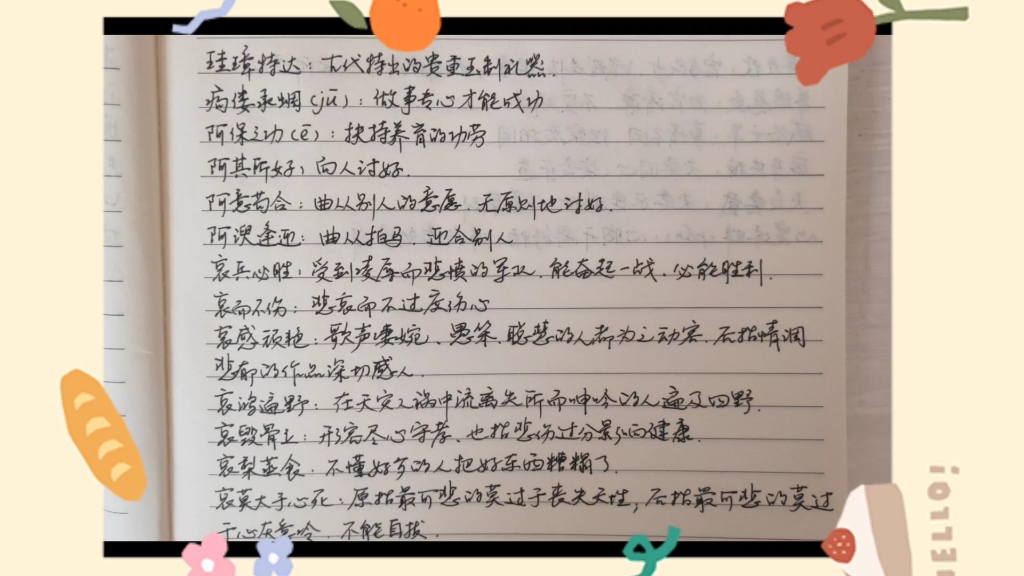 珪璋特达：古代特出的贵重玉制礼器.
病偻承蜩（jū）：做事专心才能成功
阿保之功（ē）：扶持养育的功劳
阿其所好：向人讨好.
阿意苟合：曲从别人的意愿，无原则地讨好.
阿谀逢迎：曲从拍马 迎合别人
哀兵必胜：受到凌辱而悲愤的军队，能奋起一战，必能胜利.
哀而不伤：悲哀而不过度伤心
哀感顽艳：歌声凄婉、愚笨，聪慧的人都为之动容，后指情调
悲郁的作品深切感人.
哀鸿遍野：在天灾人祸中流离失所而呻吟的人遍及四野.
哀毁骨立：形容尽心守孝，也指悲伤过分影响健康.
哀梨蒸食：不懂好歹的人把好东西糟糊了.
哀莫大于心死：原指最可悲的莫过于丧失天性，后指最可悲的莫过
于心灰意冷，不能自拔.
HELLO!